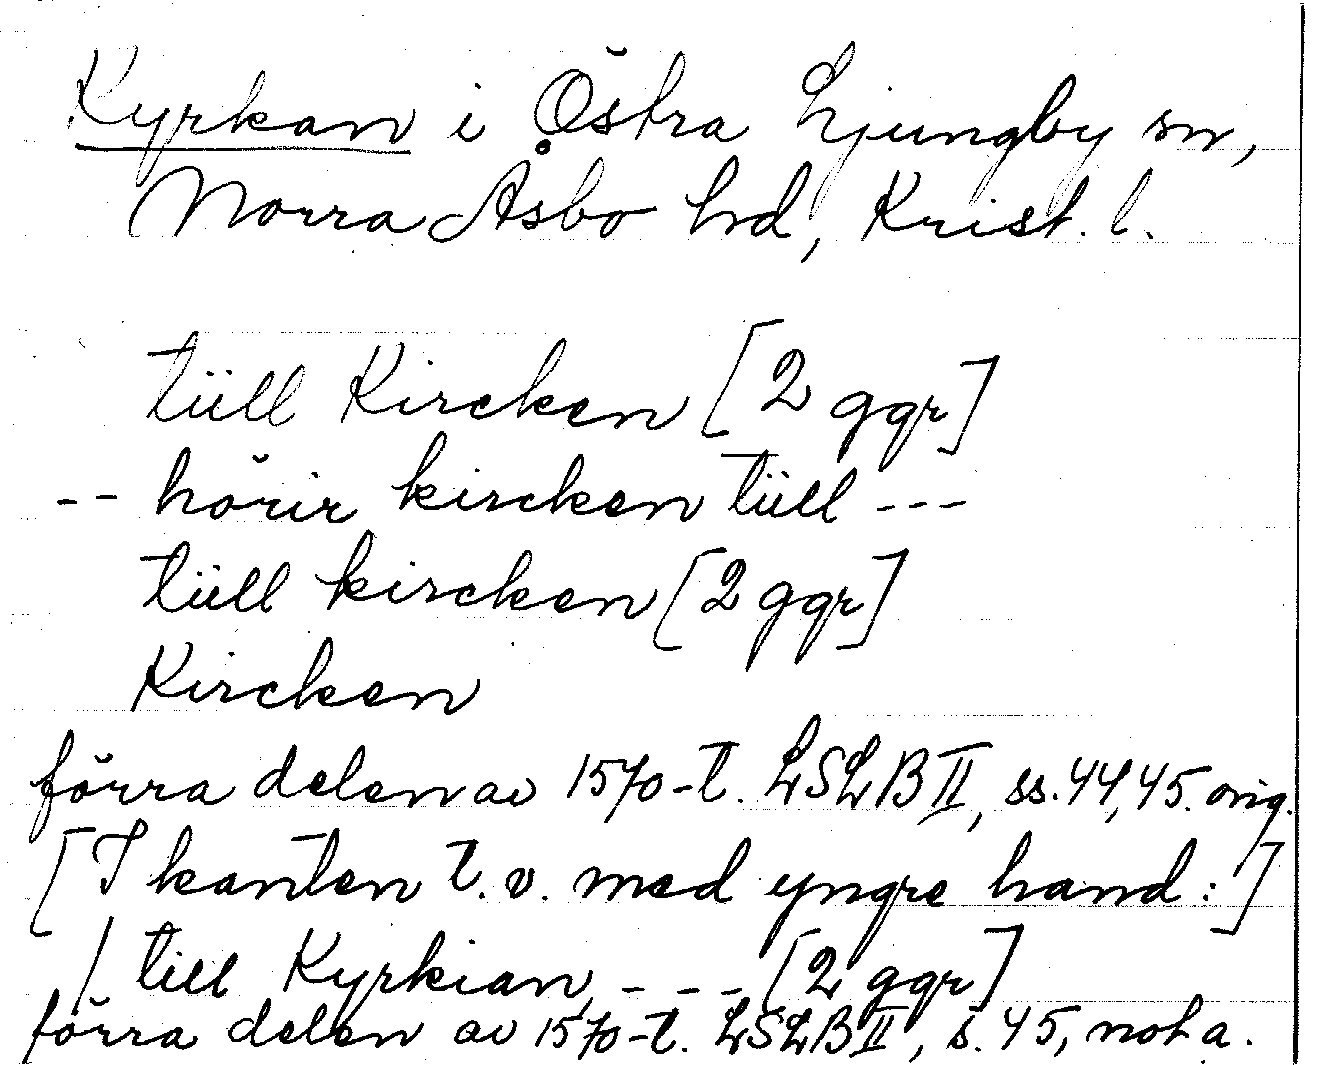 Kyrkan i Östra Ljungby sn,
Norra Åsbo hd, Krist. l.
tüll Kircken [2 ggr]
-- hörir kircken tüll ---
tüll kircken [2 ggr]
Kircken
förra delen av 1570-t. LSLB II, ss. 44, 45. orig.
[I kanten t. v. med yngre hand:]
/ till Kyrkian --- [2 ggr]
förra delen av 1570-t. LSLB II, s. 45, not a.